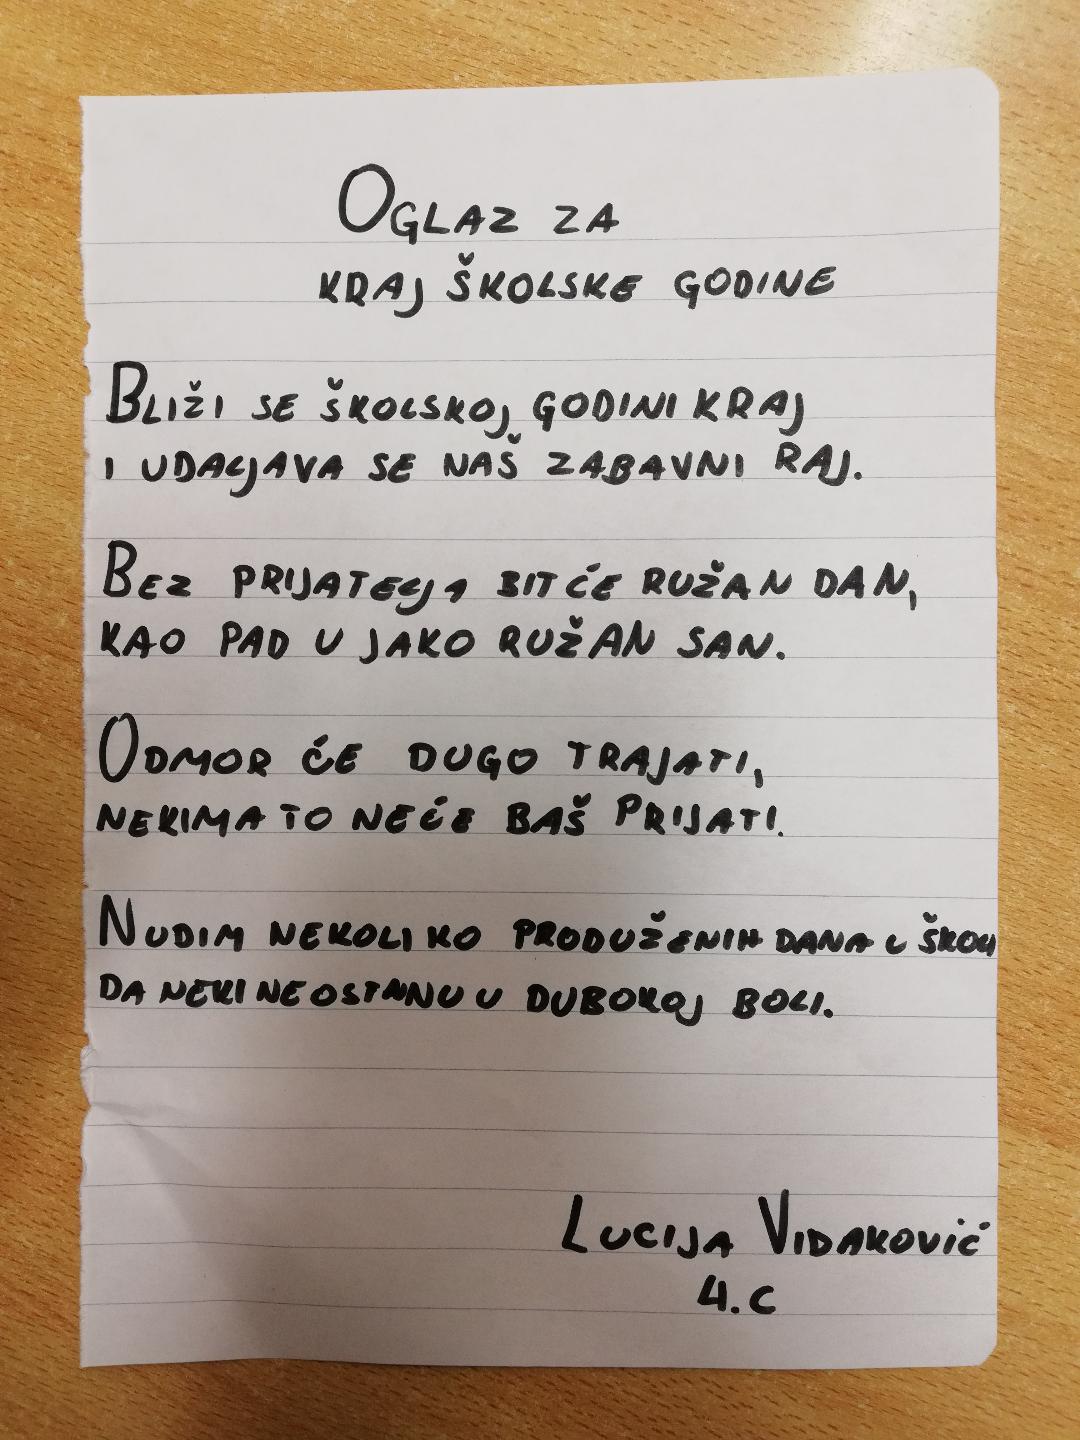 OGLAZ ZA
KRAJ ŠKOLSKE GODINE
BLIŽI SE ŠKOLSKOJ GODINI KRAJ
I UDALJAVA SE NAŠ ZABAVNI RAJ.
BEZ PRIJATELJA BIT ĆE RUŽAN DAN,
KAO PAD U JAKO RUŽAN SAN.
ODMOR ĆE DUGO TRAJATI,
NEKIMA TO NEĆE BAŠ PRIJATI.
NUDIM NEKOLIKO PRODUŽENIH DANA U ŠKOLI
DA NEKI NE OSTANU U DUBOKOJ BOLI.
LUCIJA VIDAKOVIĆ
4.C